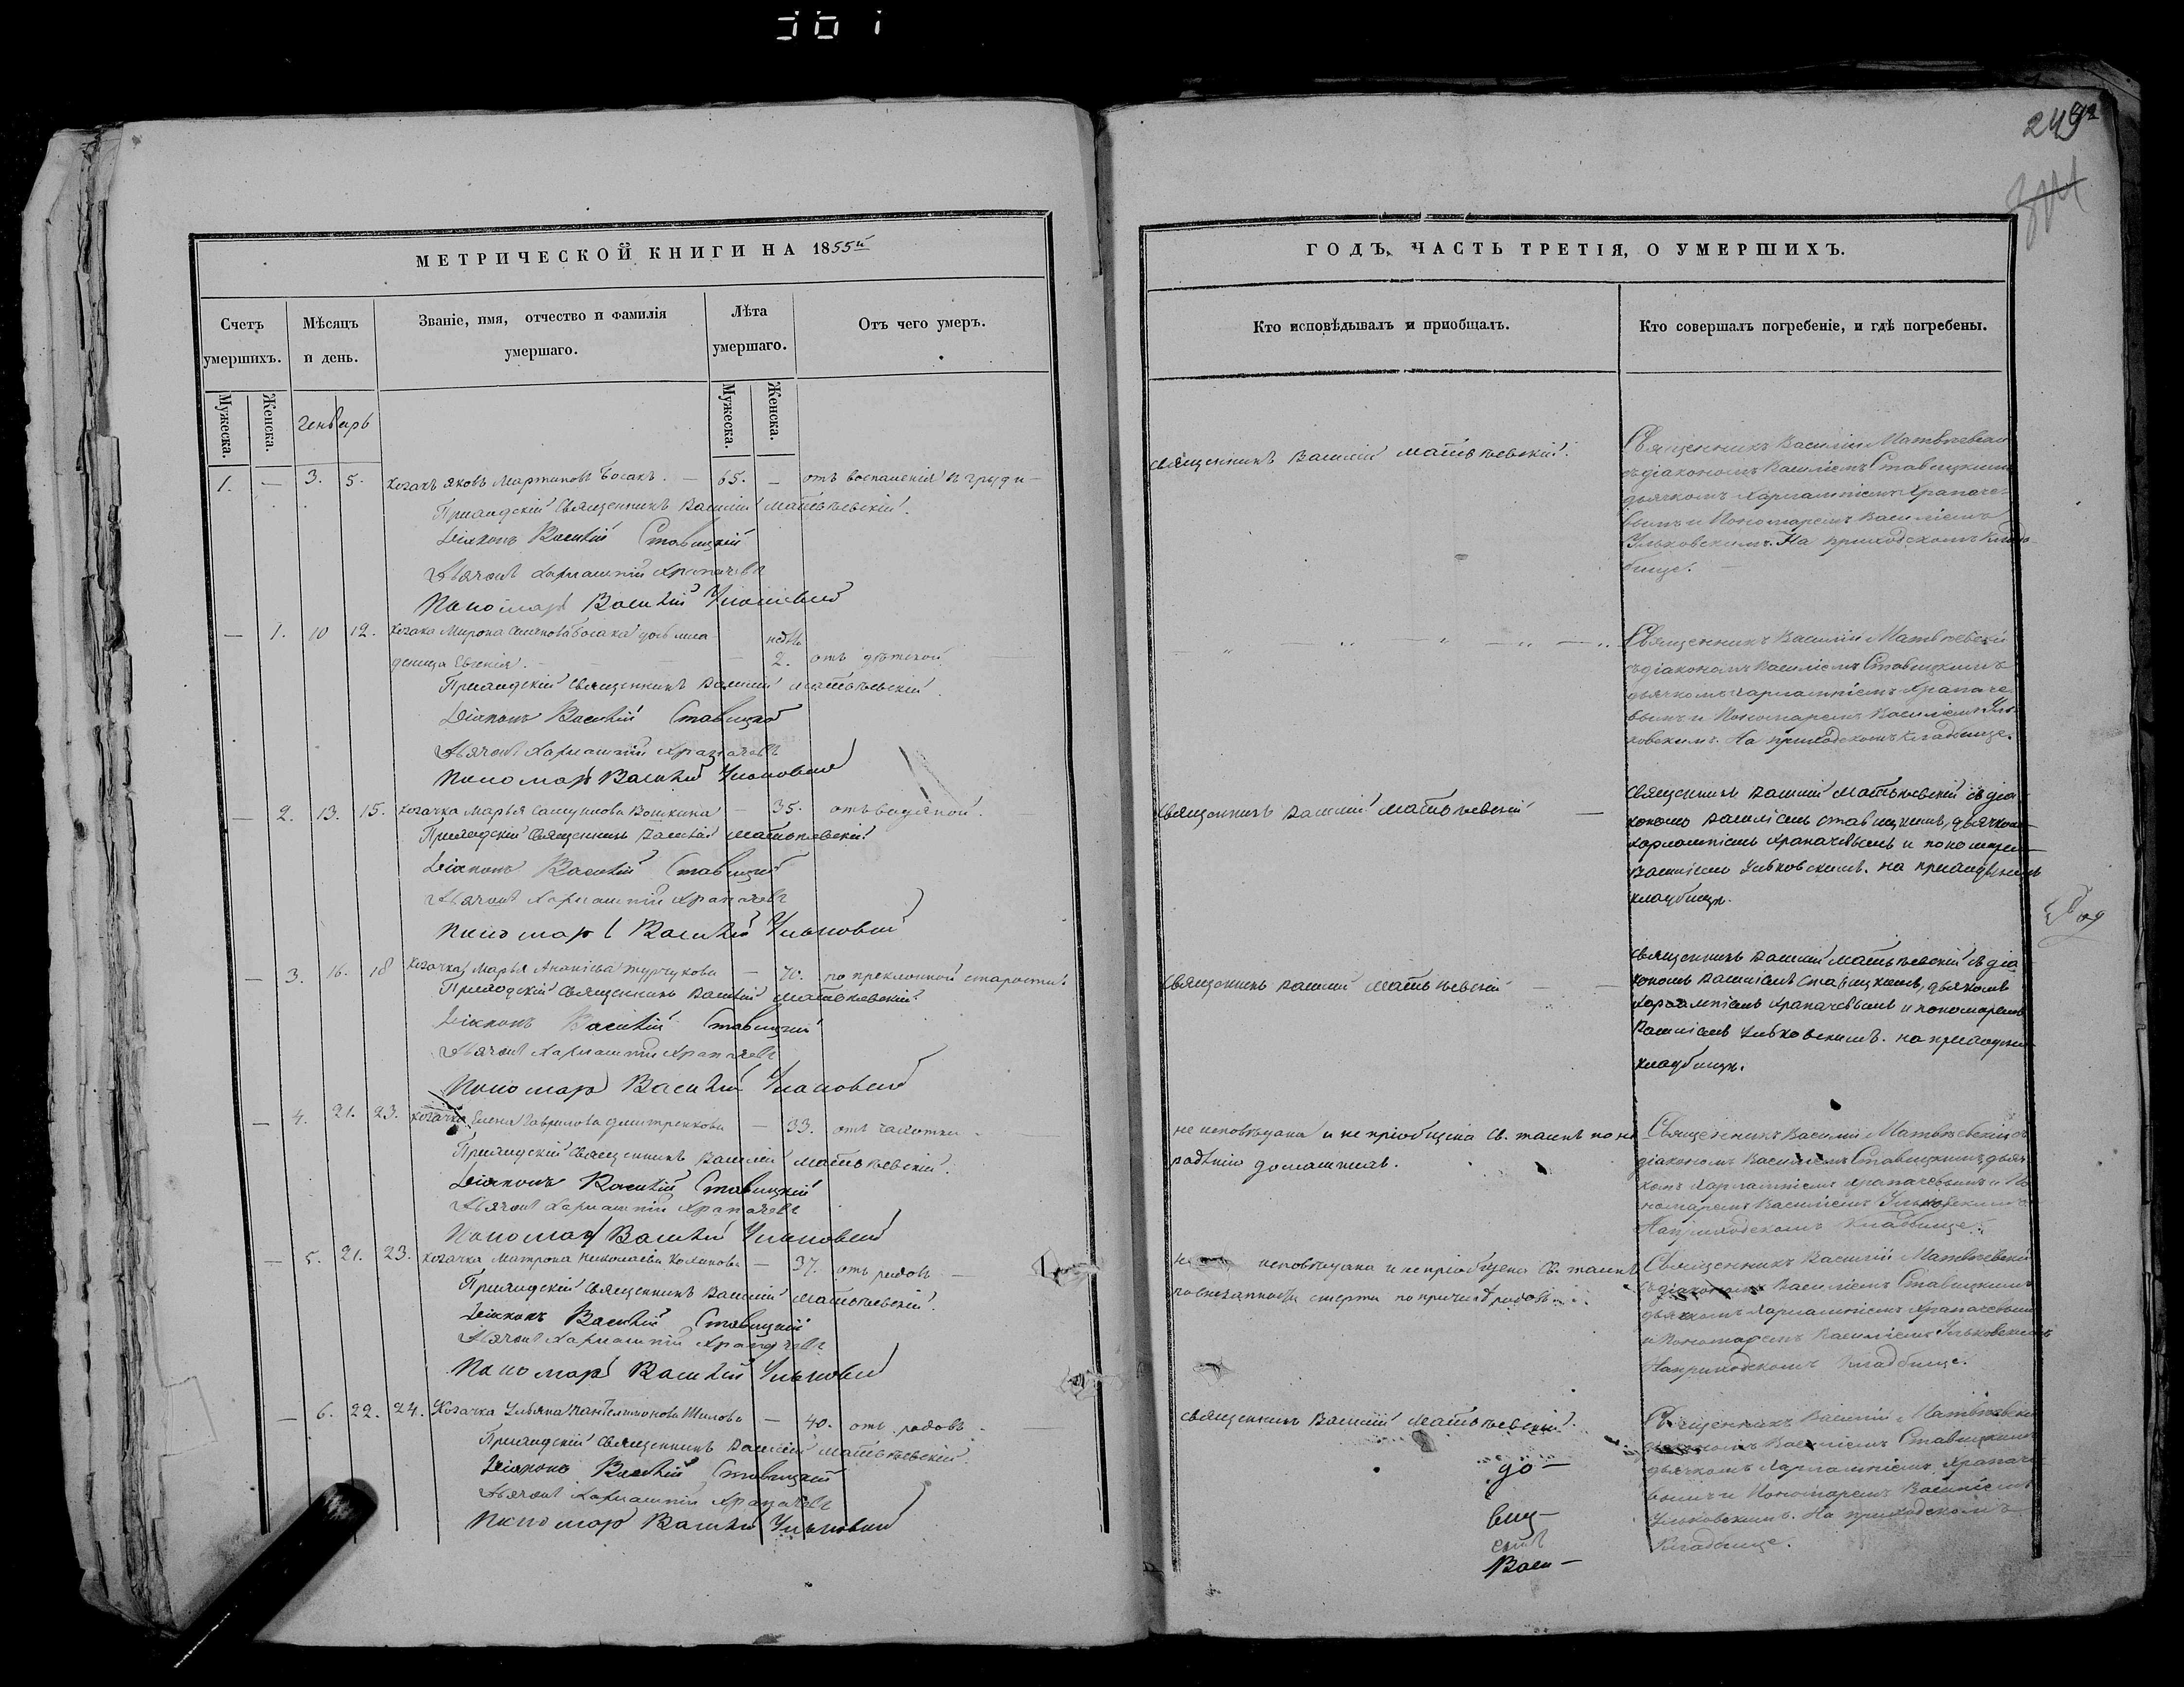 249
МЕТРИЧЕСКОЙ КНИГИ НА 1855й
Счетъ умершихъ.
Мѣсяцъ и день.
Званіе, имя, отчество и фамилія умершаго.
Лѣта умершаго.
Отъ чего умеръ.
Мужеска.
Женска.
Генварь
Мужеска.
Женска.
1. — 3. 5. козакъ Яковъ Мартиновъ Босакъ. — 65. — отъ воспаленія въ груди —
Приходскій Священникъ Василій Матвѣевскій.
Діаконъ Василій Ставицкій
Дьячокъ Харлампій Храпачевъ
Пономарь Василій Ульковскій
— 1. 10 12. козака Мирона Босака дочь мла-
денца Евгенія. — нѣд. 2. отъ дѣтской
Приходскій Священникъ Василій Матвѣевскій.
Діаконъ Василій Ставицкій
Дьячокъ Харлампій Храпачевъ
Пономарь Василій Ульковскій
— 2. 13. 15. козачка Марья Вошкина — 35. отъ водяной.
Приходскій Священникъ Василій Матвѣевскій.
Діаконъ Василій Ставицкій
Дьячокъ Харлампій Храпачевъ
Пономарь Василій Ульковскій
— 3. 16. 18 козачка Марья Ананіева — 70. по преклонной старости.
Приходскій Священникъ Василій Матвѣевскій.
Діаконъ Василій Ставицкій
Дьячокъ Харлампій Храпачевъ
Пономарь Василій Ульковскій
— 4. 21. 23. козачка Елена Гаврилова Дмитренкова — 33. отъ чахотки —
Приходскій Священникъ Василій Матвѣевскій.
Діаконъ Василій Ставицкій
Дьячокъ Харлампій Храпачевъ
Пономарь Василій Ульковскій
— 5. 21. 23. козачка Матрона Николаева — 37. отъ родовъ —
Приходскій Священникъ Василій Матвѣевскій.
Діаконъ Василій Ставицкій
Дьячокъ Харлампій Храпачевъ
Пономарь Василій Ульковскій
— 6. 22. 24. Козачка Ульяна Пантелимонова Шилова — 40. отъ родовъ —
Приходскій Священникъ Василій Матвѣевскій.
Діаконъ Василій Ставицкій
Дьячокъ Харлампій Храпачевъ
Пономарь Василій Ульковскій
ГОДЪ, ЧАСТЬ ТРЕТІЯ, О УМЕРШИХЪ.
Кто исповѣдывалъ и приобщалъ.
Кто совершалъ погребеніе, и гдѣ погребены.
Священникъ Василій Матвѣевскій.
Священникъ Василій Матвѣевскій
съ діакономъ Василіемъ Ставицкимъ
дьячкомъ Харлампіемъ Храпаче-
вымъ и Пономаремъ Василіемъ
Ульковскимъ. На приходскомъ клад-
бище. —
Священникъ Василій Матвѣевскій
съ діакономъ Василіемъ Ставицкимъ
дьячкомъ Харлампіемъ Храпаче-
вымъ и Пономаремъ Василіемъ Уль-
ковскимъ. На приходскомъ кладбище.
Священникъ Василій Матвѣевскій —
Священникъ Василій Матвѣевскій съ діа-
кономъ Василіемъ Ставицкимъ, дьячкомъ
Харлампіемъ Храпачевымъ и пономаремъ
Василіемъ Ульковскимъ. на приходскомъ
кладбищѣ.
Священникъ Василій Матвѣевскій —
Священникъ Василій Матвѣевскій съ діа-
кономъ Василіемъ Ставицкимъ, дьячкомъ
Харлампіемъ Храпачевымъ и пономаремъ
Василіемъ Ульковскимъ. на приходскомъ
кладбищѣ.
не исповѣдана и не пріобщена Св. таинъ по не-
радѣнію домашнихъ.
Священникъ Василій Матвѣевскій съ
діакономъ Василіемъ Ставицкимъ, дьяч-
комъ Харлампіемъ Храпачевымъ и По-
номаремъ Василіемъ Ульковскимъ
На приходскомъ кладбище.
не исповѣдана и не пріобщена Св. таинъ
по внезапности смерти по причинѣ родовъ.
Священникъ Василій Матвѣевскій
съ діакономъ Василіемъ Ставицкимъ
дьячкомъ Харлампіемъ Храпачевымъ
и Пономаремъ Василіемъ Ульковскимъ
На приходскомъ кладбище.
Священникъ Василій Матвѣевскій.
Священникъ Василій Матвѣевскій
діакономъ Василіемъ Ставицкимъ
дьячкомъ Харлампіемъ Храпаче-
вымъ и Пономаремъ Василіемъ
Ульковскимъ. На приходскомъ
Кладбище.
до —
Васи —